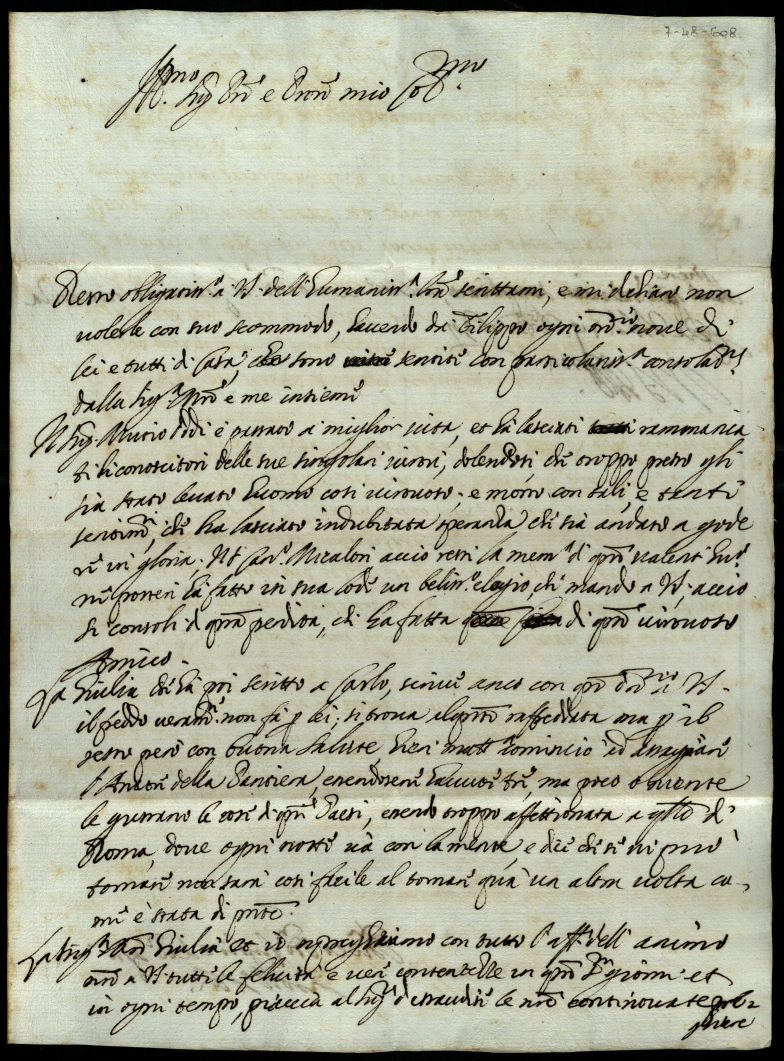 7-48-608
Ill.mo Sig.r Pre e Pron mio Co.mo
Resto obligatiss.o a V.S. dell'Humaniss.a sua scrittami, e mi dehiaro non
volerle con suo scommodo, havendo da Filippo ogni ord.rio nove di
lei e tutti di Casa, che sono sentite con particolariss.a consolat.ne
dalla Sig.ra e me insieme
Il Sig. Mutio Oddi è passato a miglior vita, et ha lasciati rammarica
ti li conoscitori delle sue singolari virtù, dolendosi che troppo presto gli
sia stato levato huomo così virtuoso; e morto con tali, e tanti
sentim.ti, che ha lasciato indubitata speranza che sia andato a gode
re in gloria; Il Micalori acciò resti la mem.a di q.sto valent'hu.o
ne posteri ha fatto in sua lode un beliss.o elogio, che mando a V.S. acciò
si consoli di q.sta perdita, che ha fatta di q.sto virtuoso
Amico.
La Giulia che ha poi scritto a Carlo, scrive anco con q.sto ord.rio a V.S.
il freddo veram.te non fa p lei; si trova al p.nte raffreddata ma p il
resto però con buona salute, hieri matt.a cominciò ad assaggiare
l'Anatre della Pantiera, essendosene havute tre, ma poco o niente
le gustano le cose di q.sti Paesi, essendo troppo affettionata a q.lle di
Roma, dove ogni notte và con la mente, e dice che se vi può
tornare non sarà così facile al tornare quà un altra volta co-
me è stata di p.nte.
La Sig.ra Giulia et io preghiamo con tutto l'aff.o dell'animo
nro a V.S. tutte le felicità e veri contentezze in q.sti giorni et
in ogni tempo, piaccia al Sig.re d'essaudire le nre continovate pre-
ghiere